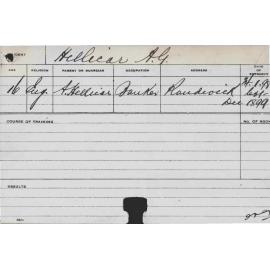 STUDENT Hellicar A.G.
AGE RELIGION PARENT OR GUARDIAN OCCUPATION ADDRESS DATE OF ENTRANCE
16 Eng. A. Hellicar Banker Randwick
Dec 1899
COURSE OF TRAINING
RESULTS